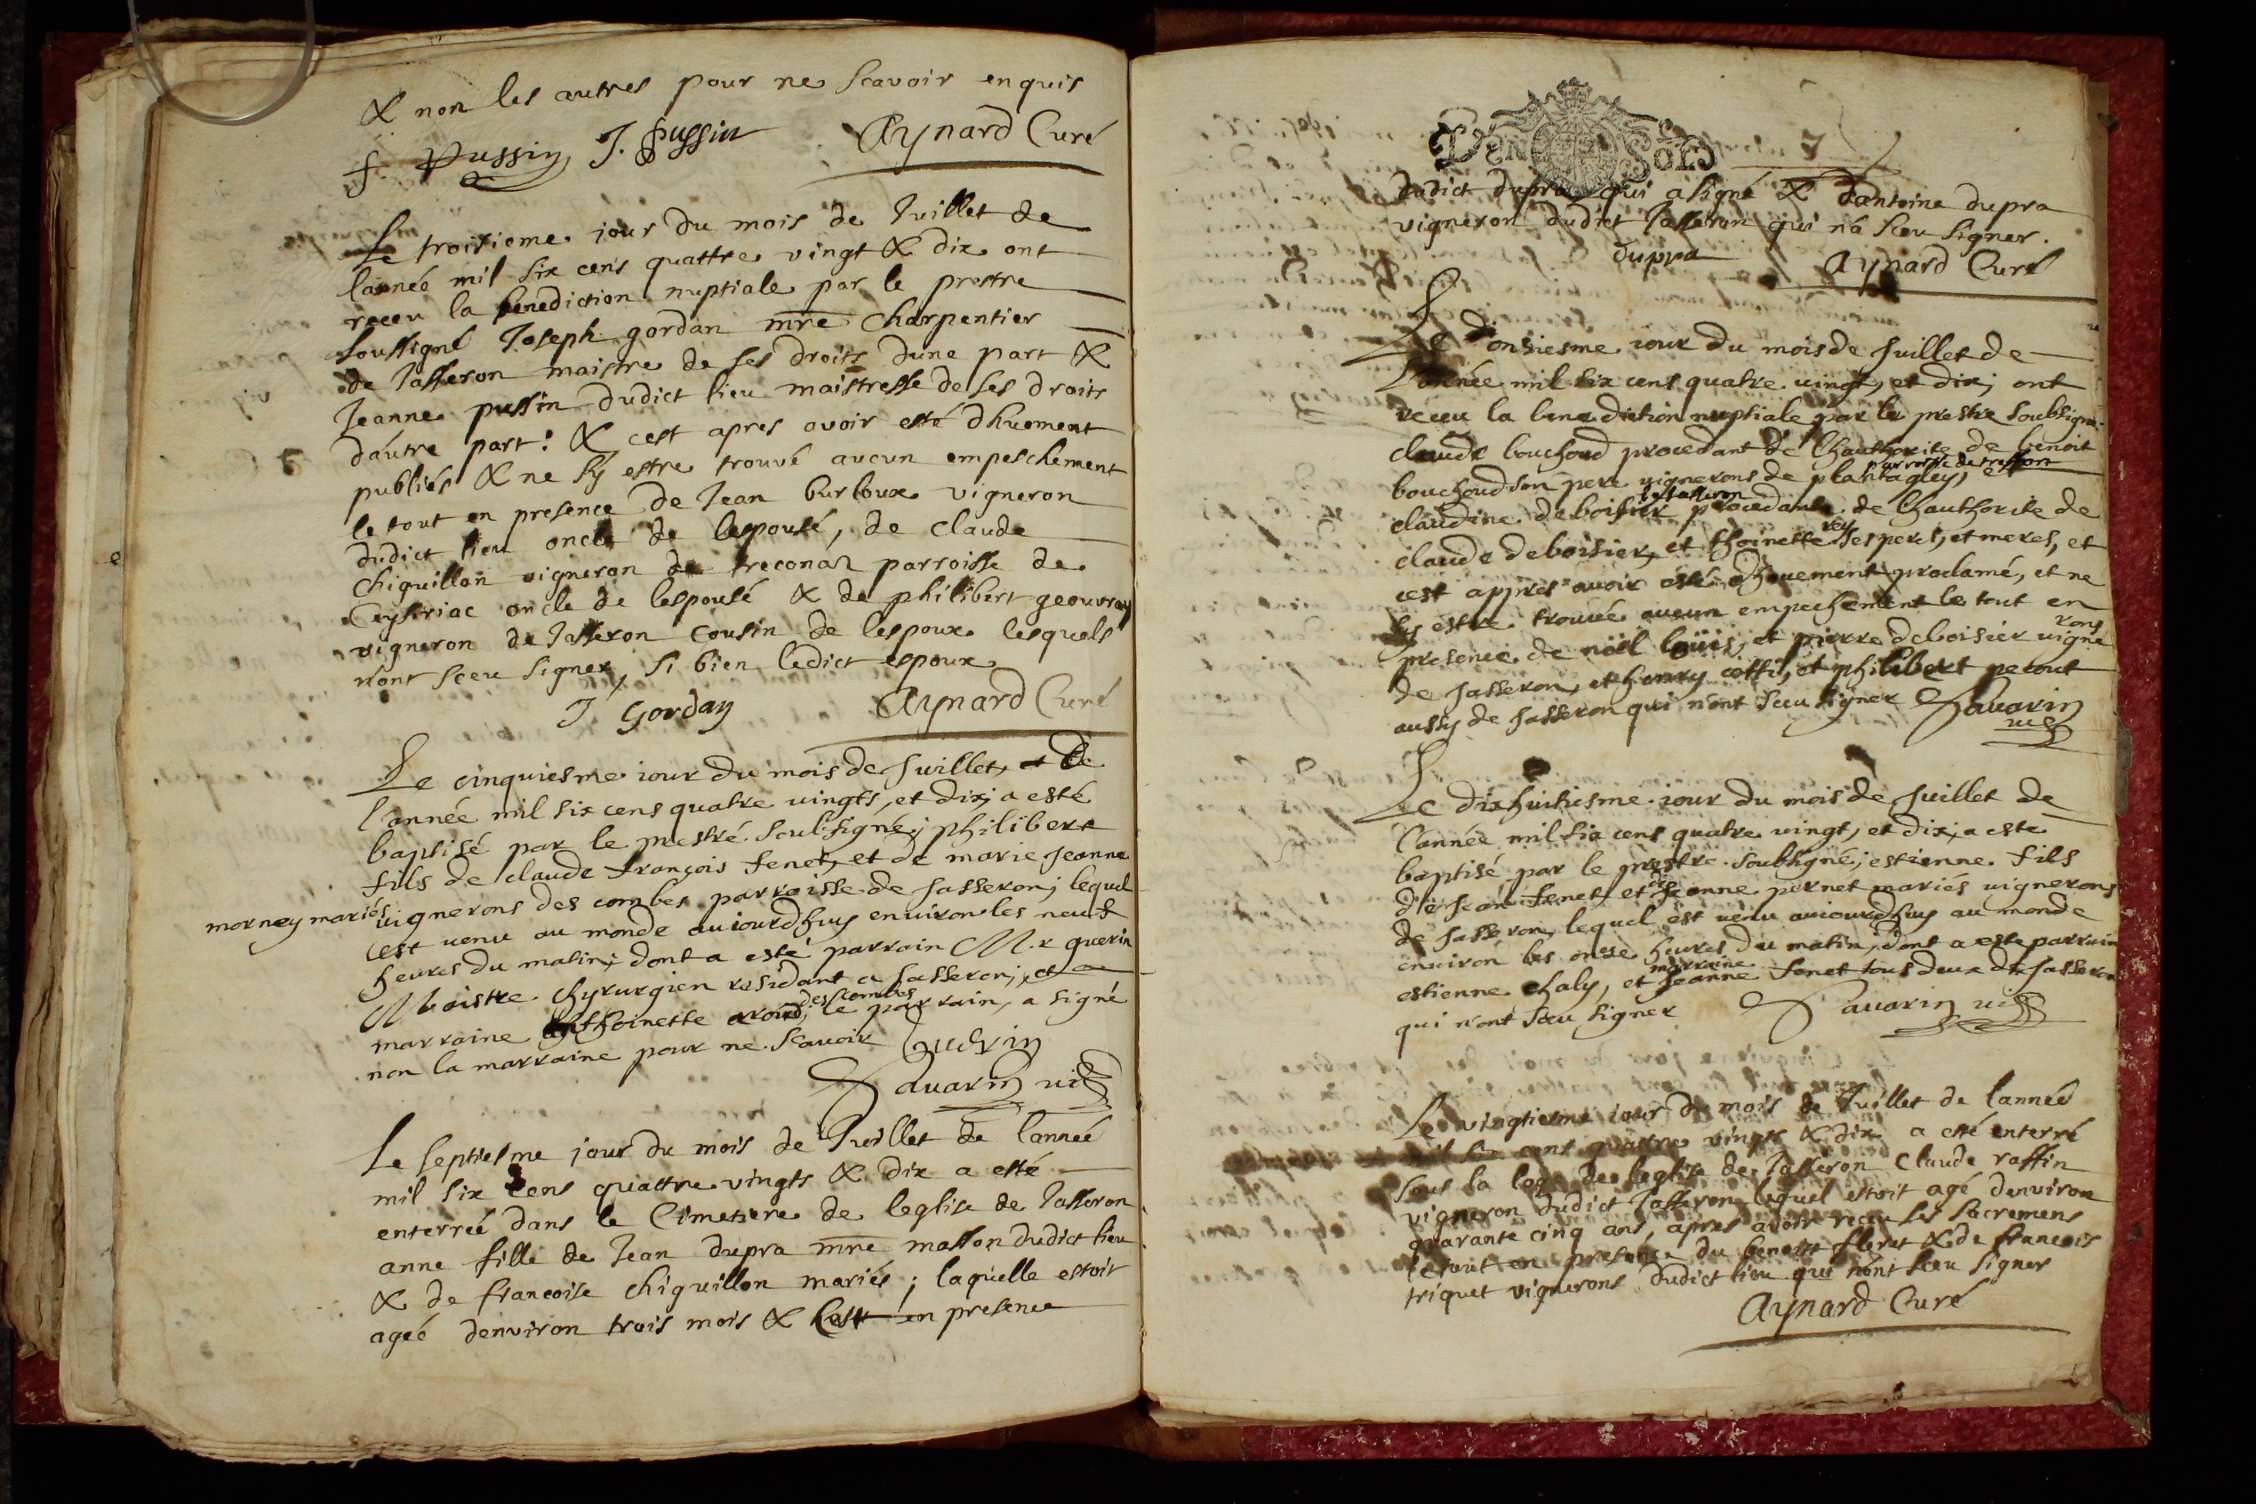 & non les autres pour ne scavoir enquis
f. Pussin J. Pussin Aynard Curé
Le troisieme jour du mois de Juillet de
lannée mil six cens quattre vingt & dix ont
receu la benediction nuptiale par le prestre
soussigné Joseph gordan mre charpentier
de Jasseron maistre de ses droits dune part &
Jeanne pussin dudict lieu maistresse de ses droits
dautre part: & cest apres avoir esté dhuement
publiés & ne sy estre trouvé aucun empeschement
le tout en presence de Jean burloux vigneron
dudict lieu oncle de lespousé, de claude
chiquillon vigneron de treconas parroisse de
Ceyseriac oncle de lespousé & de philibert geouvray
vigneron de Jasseron cousin de lespoux lesquels
nont sceu signer, si bien ledict espoux
J. Gordan Aynard Curé
Le cinquiesme iour du mois de Juillet, et de
l'année mil six cens quatre vingts, et dix; a esté
baptisé par le prestre soubsigné; philibert
fils de claude françois fenet, et de marie Jeanne
morney mariés vignerons des combes parroisse de Jasseron; lequel
est venu au monde auiourdhuy environ les neuf
heures du matin; dont a esté parrain Mr guerin
Maistre chyrurgien residant a Jasseron; et
marraine anthoinette arond, des combes; le parrain, a signé
non la marraine pour ne scavoir Guerin
Savarin vic
Le septiesme jour du mois de Juillet de lannée
mil six cens quattre vingts & dix a esté
enterreé dans le Cimetiere de leglise de Jasseron
anne fille de Jean dupra mre masson dudict lieu
& de francoise chiquillon mariés; laquelle estoit
ageé denviron trois mois & cest en presence
DEN SOLS 7
dudict dupra qui a signé & dantoine dupra
vigneron dudict Jasseron qui n'a sceu signer.
duppra Aynard Curé
Le onsiesme iour du mois de Juillet de
l'année mil six cens quatre vingt, et dix; ont
receu la benediction nuptiale par le prestre soubsigné
claude bouchoud procedant de l'hauthorite de benoit
bouchoud son pere vignerons de plantagley, parroisse de treffort et
claudine deboisier de Jasseron procedante de l'hauthorite de
claude deboisier, et thoinette rey ses peres, et meres, et
cest appres avoir esté dhouement proclamé, et ne
sy estre trouvé aucun empechement le tout en
presence de noël loüis, et pierre deboisier vignerons
de Jasseron, et henry cotti, et philibert pecout
aussy de Jasseron qui n'ont sceu signer Savarin
vic
Le dixhuitiesme iour du mois de Juillet de
l'année mil six cens quatre vingt, et dix; a este
baptisé par le prestre soubsigné; estienne fils
de Jean fenet, et de Jeanne pernet mariés vignerons
de Jasseron, lequel est venu auiourdhuy au monde
environ les onse heures du matin, dont a este parrain
estienne chaly, et marraine Jeanne fenet tous deux de Jasseron
qui n'ont sceu signer Savarin vic
Le vingtiesme iour du mois de Juillet de lannée
mil six cens quattre vingts & dix a esté enterré
sous la loge de leglise de Jasseron Claude raffin
vigneron dudict Jasseron lequel estoit agé denviron
quarante cinq ans, apres avoir receu ses sacremens
le tout en presence du benoist floret & de francois
triquet vignerons dudict lieu qui nont sceu signer
Aynard Curé